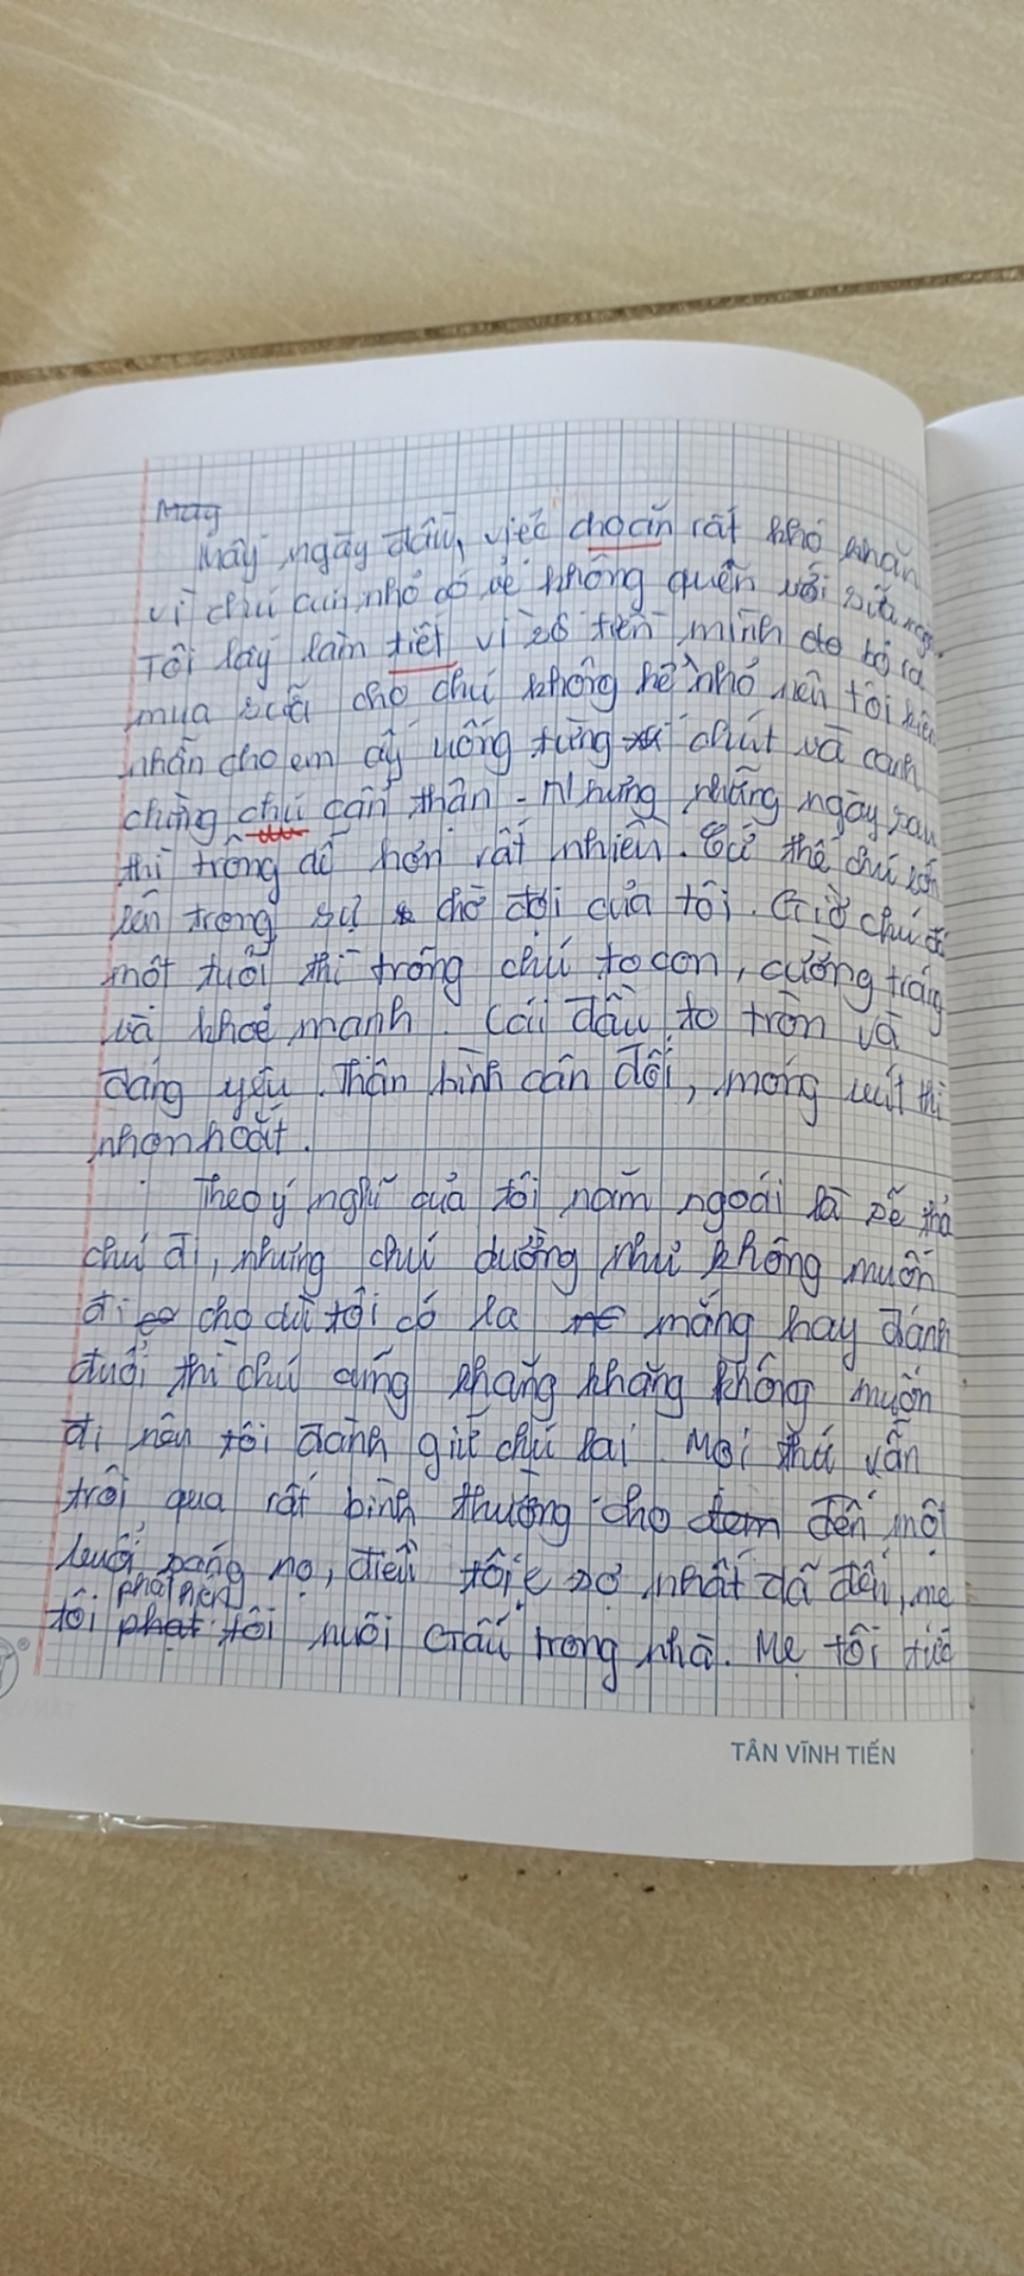 Mấy
Mấy ngày đầu, việc cho ăn rất khó khăn
vì chú cún nhỏ có vẻ không quen với sữa
Tôi lấy làm tiết vì số tiền mình đo bỏ ra
mua sữa cho chú không hề nhỏ nên tôi kiên
nhẫn cho em ấy uống từng chút và canh
chừng chú cẩn thận. Nhưng những ngày sau
thì trông dễ hơn rất nhiều. Cứ thế chú lớn
lên trong sự chờ đợi của tôi. Giờ chú đã
một tuổi thì trông chú to con, cường tráng
và khoẻ mạnh. Cái đầu to tròn và
đáng yêu. Thân hình cân đối, móng vuốt thì
nhọn hoắt.
Theo ý nghĩ của tôi năm ngoái là sẽ thả
chú đi, nhưng chú dường như không muốn
đi cho dù tôi có la mắng hay đánh
đuổi thì chú cứng khăng khăng không muốn
đi nên tôi đành giữ chú lại. Mọi thứ vẫn
trôi qua rất bình thường cho đem đến một
buổi sáng nọ, điều tôi sợ nhất đã đến, mẹ
phát hiện
tôi phat tôi nuôi Gấu trong nhà. Mẹ tôi tức
TÂN VĨNH TIẾN